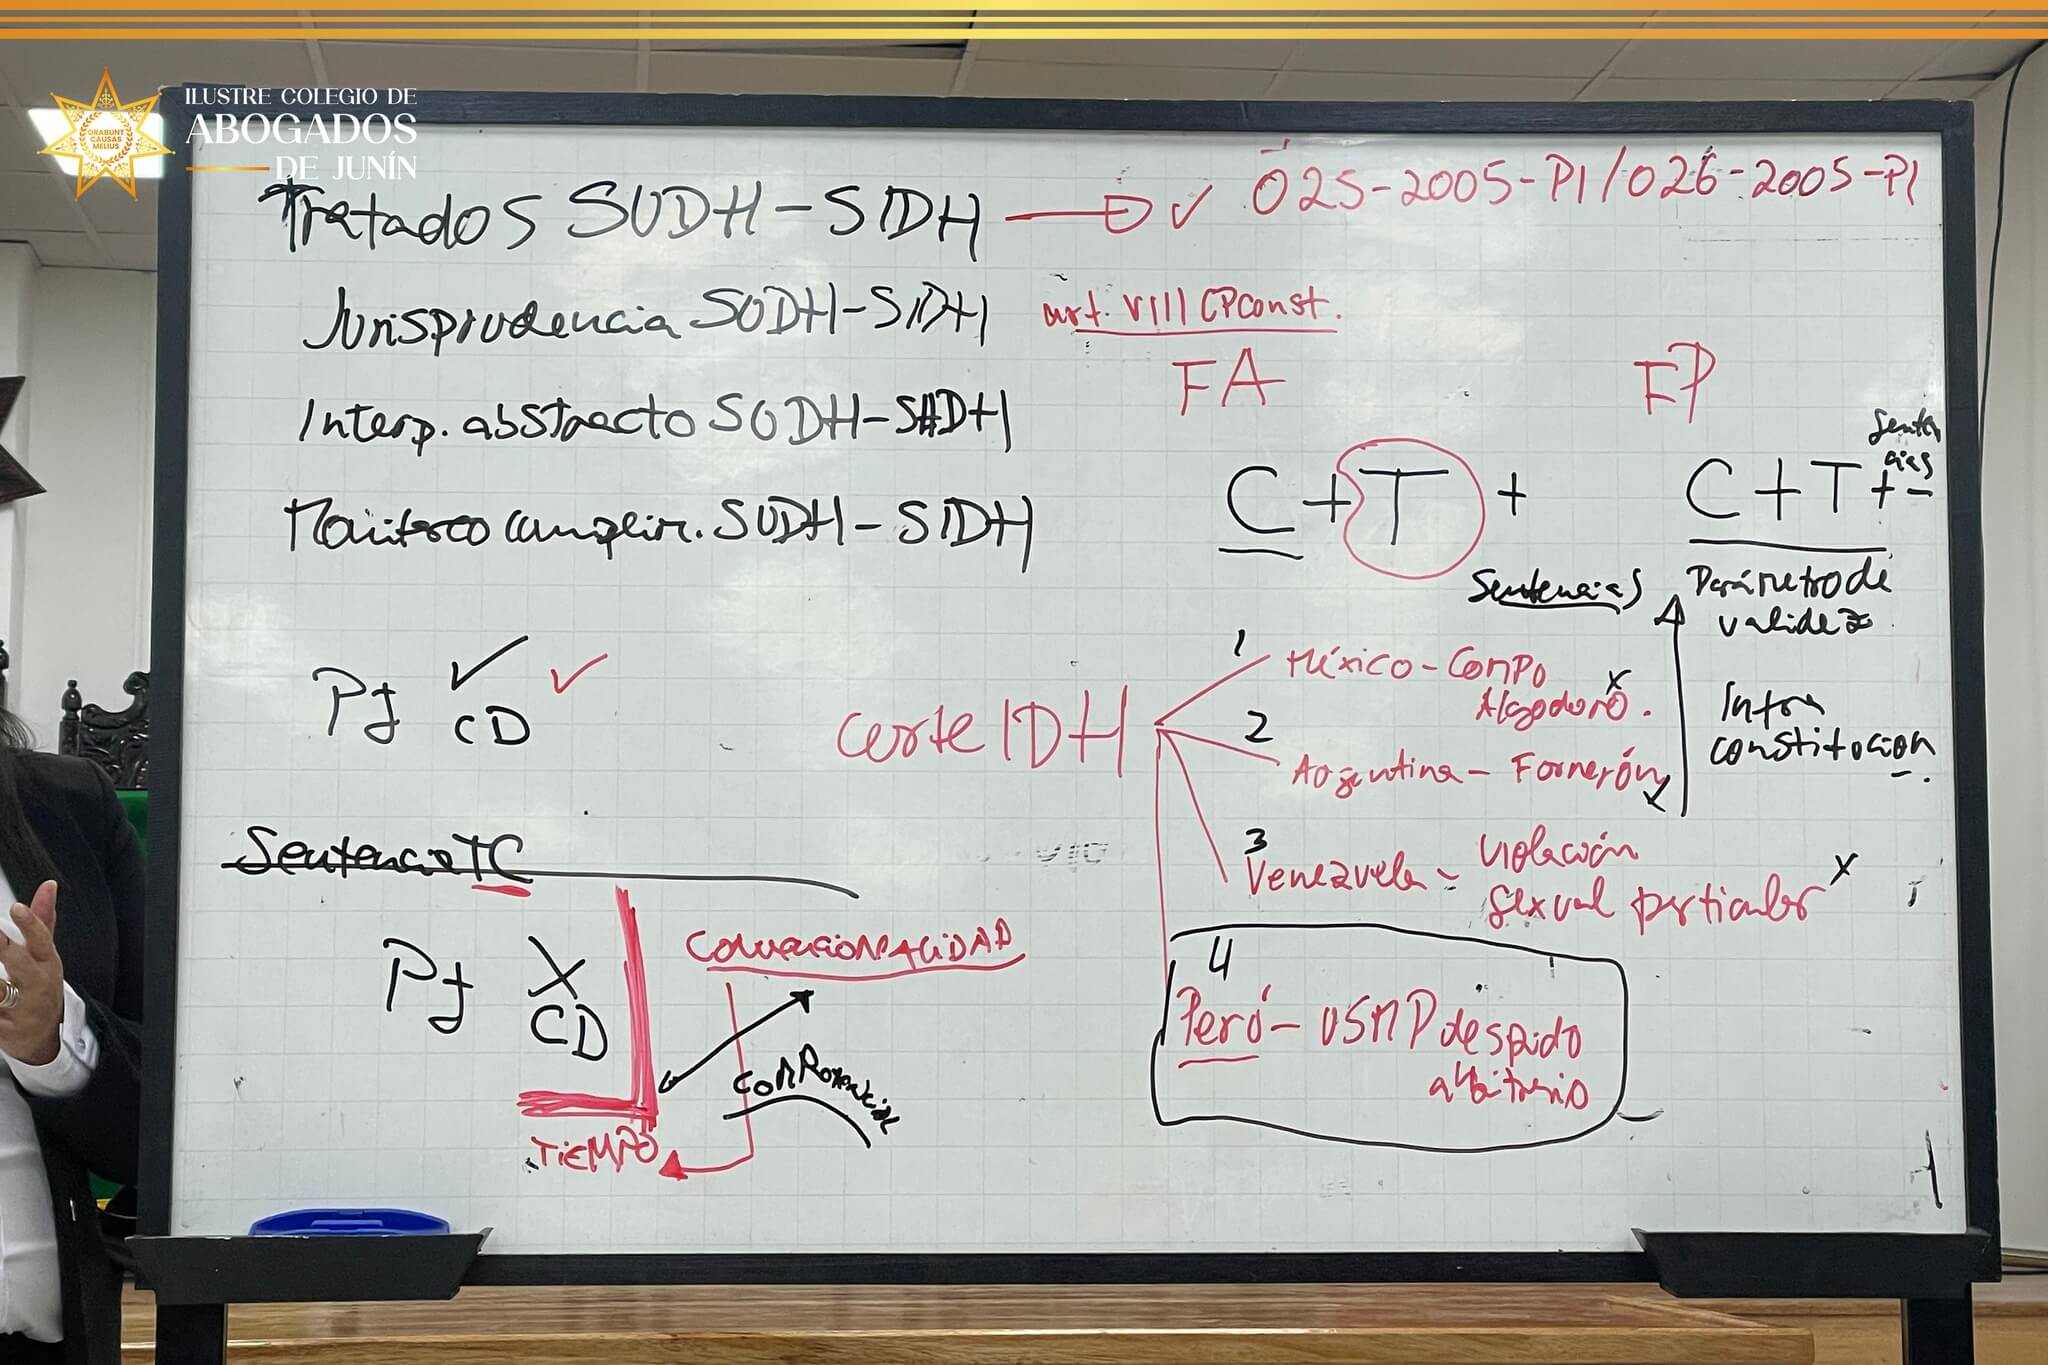 ILUSTRE COLEGIO DE
ABOGADOS
DE JUNÍN
ORABUNT
CAUSAS
MELIUS
Tratados SUDH-SIDH → ✓ 025-2005-PI/026-2005-PI
Jurisprudencia SUDH-SIDH art. VIII CPConst.
Interp. abstracto SUDH-SIDH
Monitoreo cumplim. SUDH-SIDH
FA
C + T +
Sentencias
FP
C + T + -
Senten
cias
Parámetro de
validez
Infra
constitución.
Pj ✓ ✓
CD
Corte IDH
1 México - Campo
Algodonero. x
2 Argentina - Fornerón
3 Venezuela - violación
sexual particular x
4
Perú - USMP despido
arbitrario
Sentencia TC
Pj X
CD
CONVENCIONALIDAD
TIEMPO